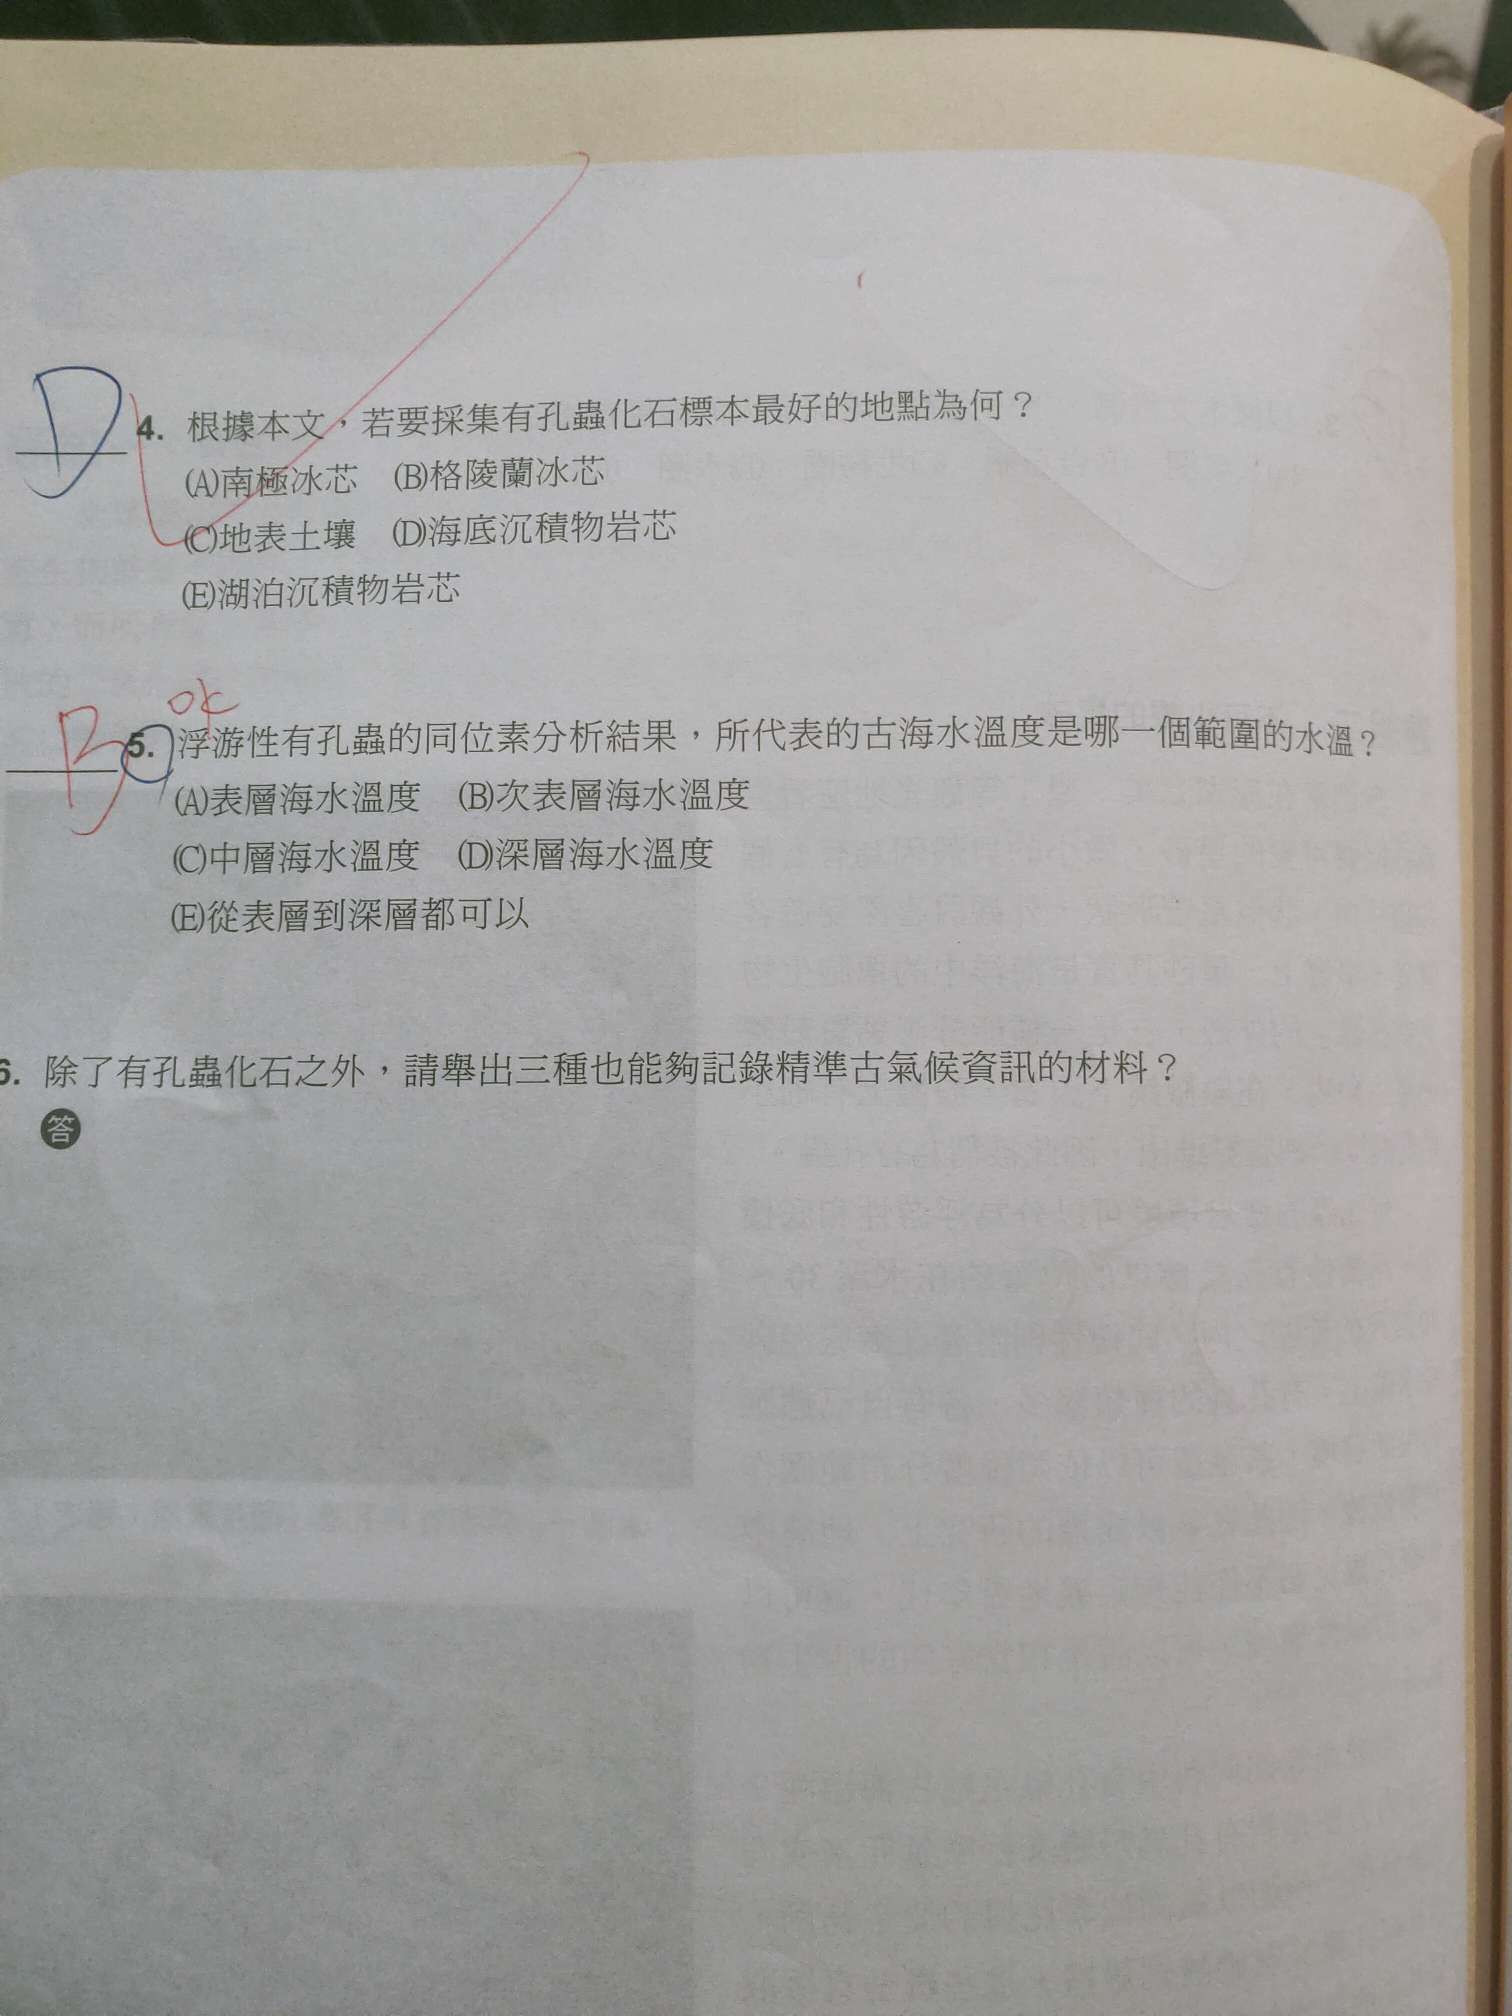 D
4. 根據本文，若要採集有孔蟲化石標本最好的地點為何？
(A)南極冰芯 (B)格陵蘭冰芯
(C)地表土壤 (D)海底沉積物岩芯
(E)湖泊沉積物岩芯
B
5. 浮游性有孔蟲的同位素分析結果，所代表的古海水溫度是哪一個範圍的水溫？
(A)表層海水溫度 (B)次表層海水溫度
(C)中層海水溫度 (D)深層海水溫度
(E)從表層到深層都可以
6. 除了有孔蟲化石之外，請舉出三種也能夠記錄精準古氣候資訊的材料？
答